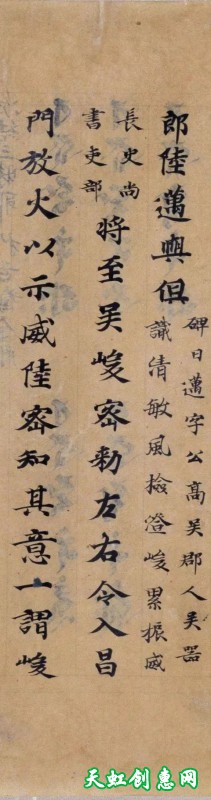 郎陸邁與俱
碑曰邁字公高吴郡人美器
識清敏風撿澄峻累振威
長史尚
書吏部
将至吴峻密勑左右令入昌
門放火以示威陸密知其意謂峻
天虹创惠网